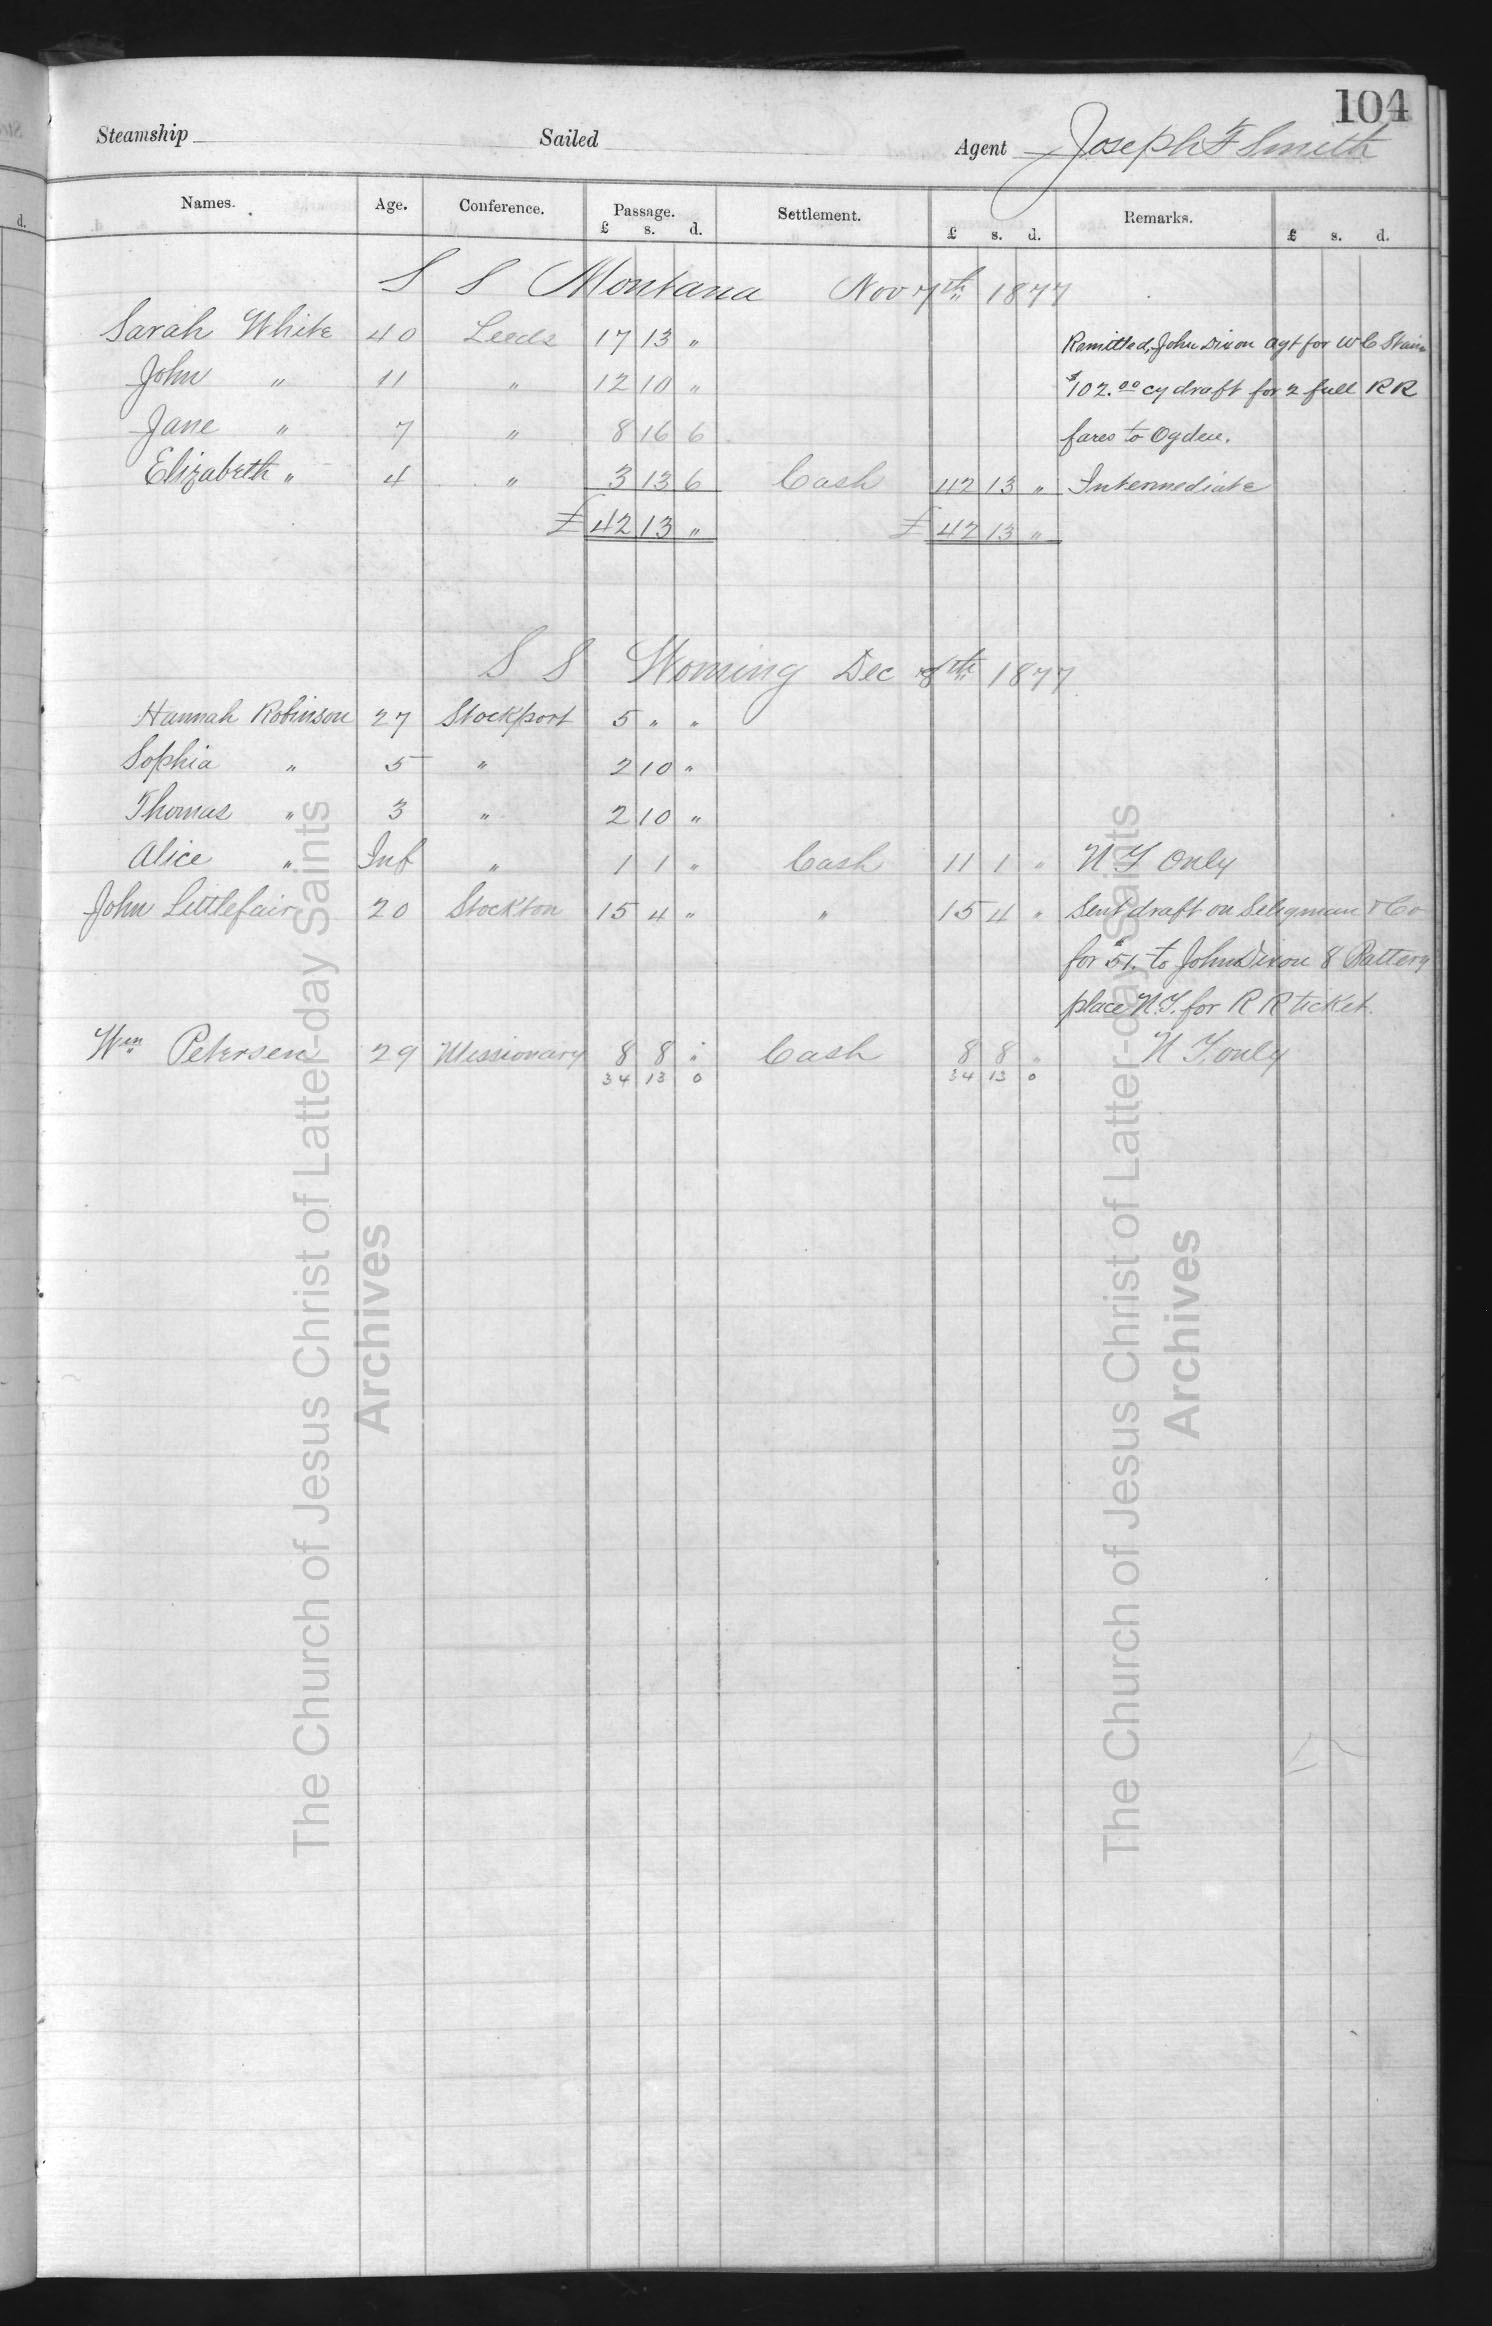 104
Steamship Sailed Agent Joseph F Smith
Names. Age. Conference. Passage. Settlement. Remarks.
£ s. d. £ s. d. £ s. d.
d.
S S Montana Nov 7th 1877
Sarah White 40 Leeds 17 13 " Remitted, John Dixon agt for W C Stain
John " 11 " 12 10 " $102.00 cy draft for 2 full RR
Jane " 7 " 8 16 6 fares to Ogden.
Elizabeth " 4 " 3 13 6 Cash 42 13 " Intermediate
£ 42 13 " £ 42 13 "
S S Woming Dec 8th 1877
Hannah Robinson 27 Stockport 5 " "
Sophia " 5 " 2 10 "
Thomas " 3 " 2 10 "
Alice " Inf " 1 1 " Cash 11 1 " N Y Only
John Littlefair 20 Stockton 15 4 " " 15 4 " Sent draft on Seligman & Co
for $51. to John Dixon 8 Battery
place N.Y. for R R ticket.
Wm Petersen 29 Missionary 8 8 " Cash 8 8 " N Y. only
34 13 0 34 13 0
The Church of Jesus Christ of Latter-day Saints
Archives
The Church of Jesus Christ of Latter-day Saints
Archives